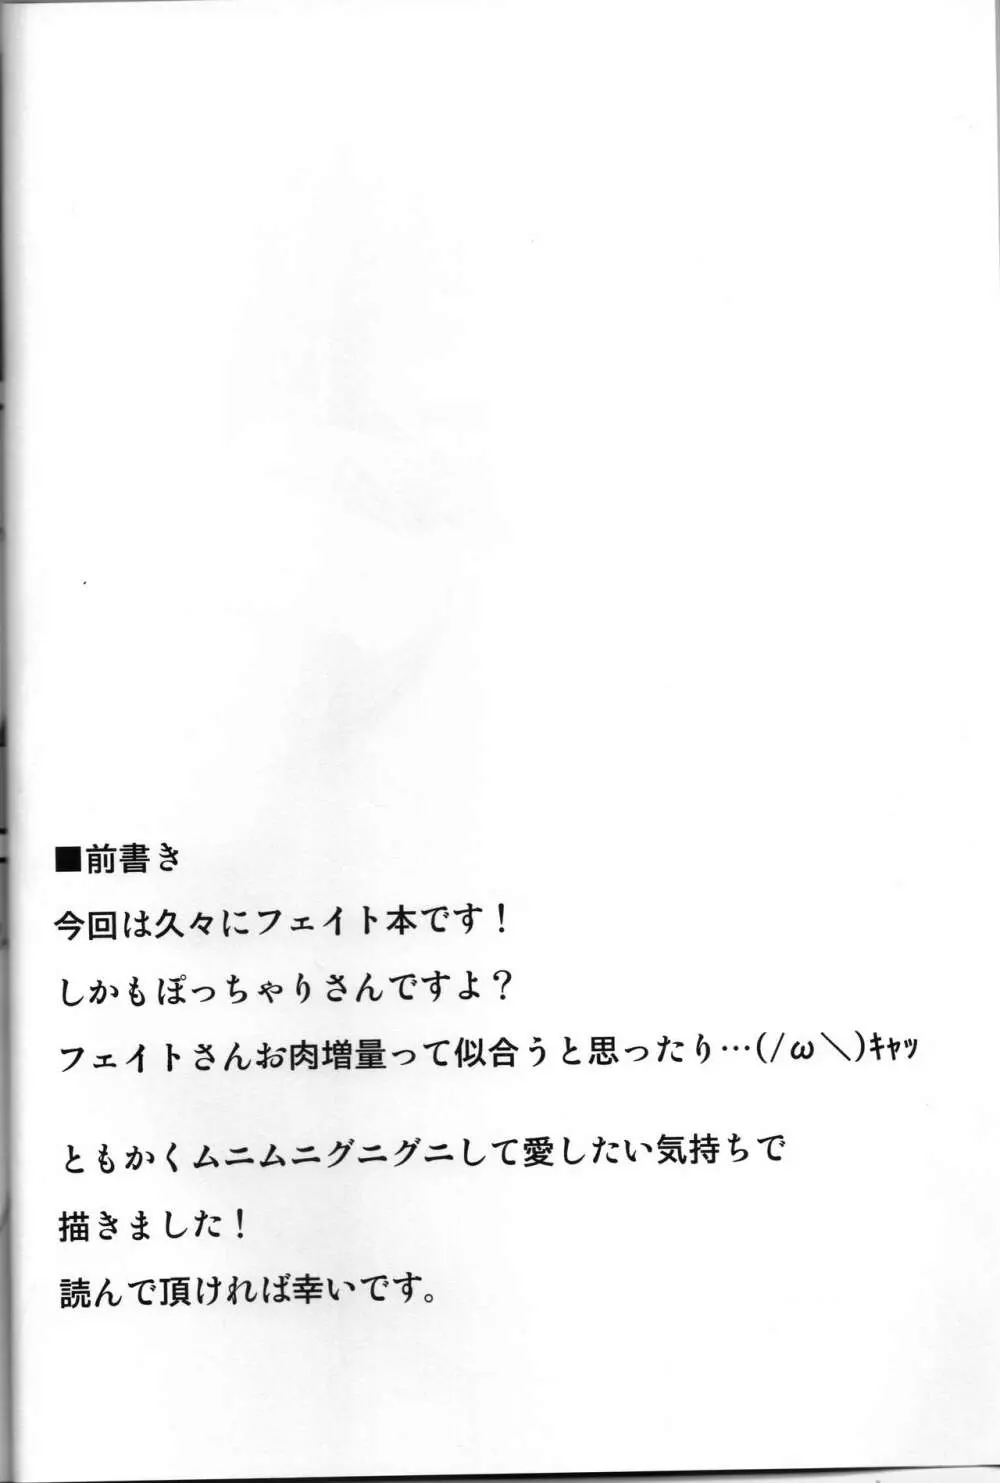 ■前書き
今回は久々にフェイト本です！
しかもぽっちゃりさんですよ？
フェイトさんお肉増量って似合うと思ったり…(/ω＼)ｷｬｯ
ともかくムニムニグニグニして愛したい気持ちで
描きました！
読んで頂ければ幸いです。